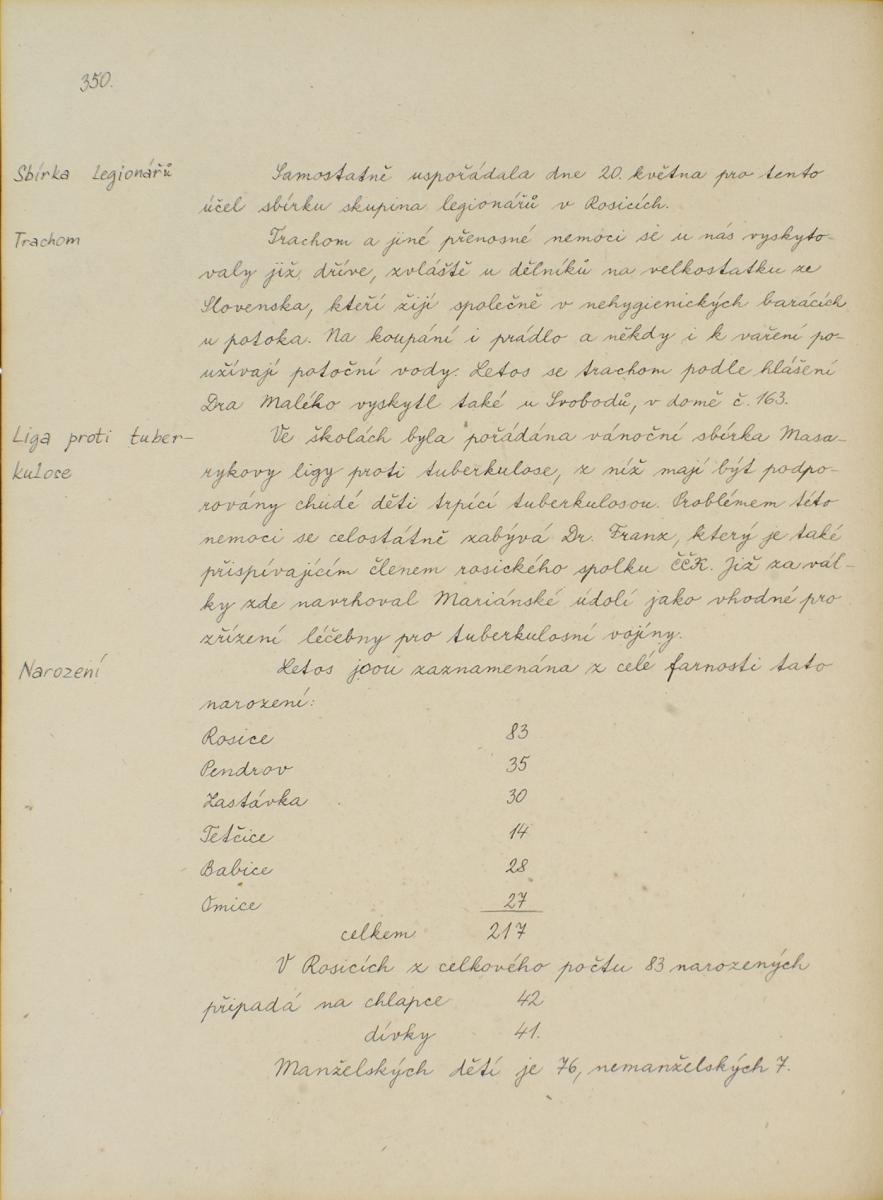 350.
Sbírka legionářů
Samostatně uspořádala dne 20. května pro tento
účel sbírku skupina legionářů v Rosicích.
Trachom
Trachom a jiné přenosné nemoci se u nás vyskyto-
valy již dříve, zvláště u dělníků na velkostatku ze
Slovenska, kteří žijí společně v nehygienických barácích
u potoka. Na koupání i prádlo a někdy i k vaření po-
užívají potoční vody. Letos se trachom podle hlášení
Dra Malého vyskytl také u Svobodů, v domě č. 163.
Liga proti tuber-
kulose
Ve školách byla pořádána vánoční sbírka Masa-
rykovy ligy proti tuberkulose, z níž mají být podpo-
rovány chudé děti trpící tuberkulosou. Problémem této
nemoci se celostátně zabývá Dr. Franz, který je také
přispívajícím členem rosického spolku ČČK. Již za vál-
ky zde navrhoval Mariánské údolí jako vhodné pro
zřízení léčebny pro tuberkulosní vojíny.
Narození
Letos jsou zaznamenána z celé farnosti tato
narození:
Rosice 83
Pendrov 35
Zastávka 30
Tetčice 14
Babice 28
Omice 27
celkem 217
V Rosicích z celkového počtu 83 narozených
připadá na chlapce 42
dívky 41.
Manželských dětí je 76, nemanželských 7.